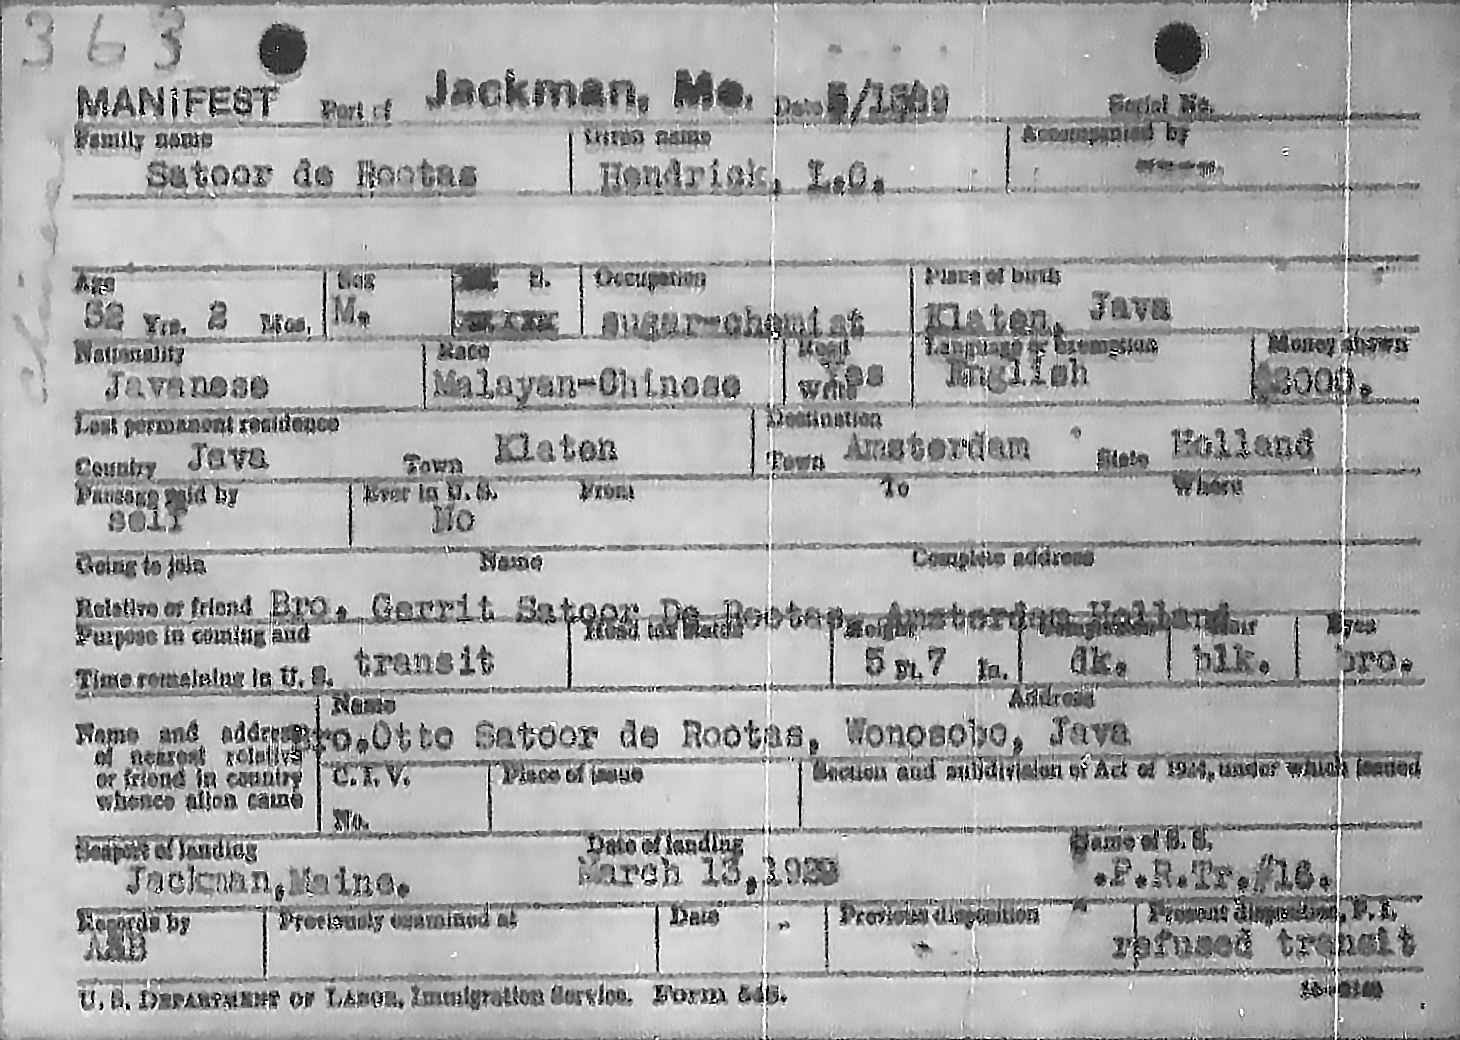 363
MANIFEST Port of Jackman, Me. Date Serial No.
Family name Given name Accompanied by
Satoor de Rootas Hendrick, L.O. -----.
Age Sex S. Occupation Place of birth
Yrs. 2 Mos. M. sugar-chemist Klaten, Java
Nationality Race Read Language or Exemption Money shown
Javanese Malayan-Chinese Write Yes English $3000.
Last permanent residence Destination
Country Java Town Klaten Town Amsterdam State Holland
Passage paid by Ever in U. S. From To Where
self No
Going to join Name Complete address
Relative or friend Bro. Gerrit Satoor De Rootas, Amsterdam Holland
Purpose in coming and Head tax status Height Complexion Hair Eyes
Time remaining in U. S. transit 5 Ft. 7 In. dk. blk. bro.
Name Address
Name and address Bro.Otto Satoor de Rootas, Wonosobo, Java
of nearest relative
or friend in country C. I. V. Place of issue Section and subdivision of Act of 1924, under which issued
whence alien came
No.
Seaport of landing Date of landing Name of S. S.
Jackman,Maine. March 13, .P.R.Tr.#16.
Records by Previously examined at Date Previous disposition Present disposition, P. I.
AAB refused transit
U. S. DEPARTMENT OF LABOR, Immigration Service. Form 548.
chinese